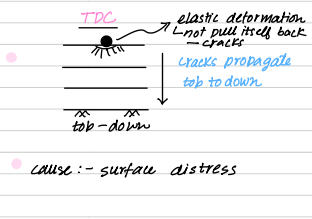 TDC
elastic deformation
not pull itself back
- cracks
cracks propagate
tob to down
tob-down
cause :- surface distress